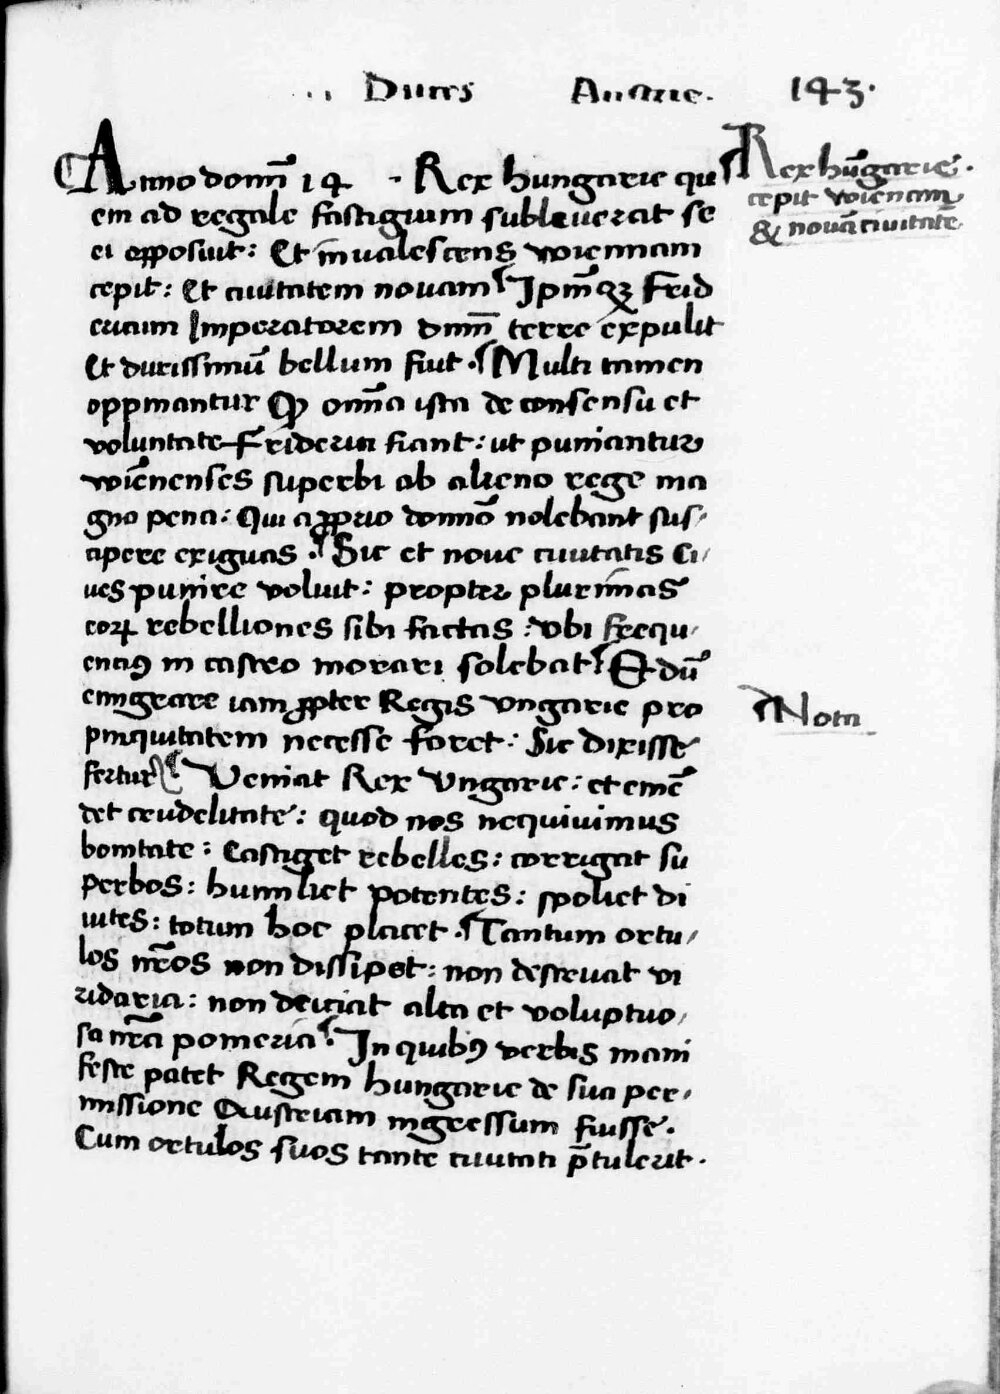 Duces Austrie. 143.
Anno domi͞ 14 - Rex hungarie qu
em ad regale fastigium subleuerat se
ei opposuit: Et inualescens wiennam
cepit: Et ciuitatem nouam Ip͞mqꝫ Frid
ericum Imperatorem dn͞m terre expulit
Et durissimu͞ bellum fuit. Multi tamen
oppinantur ꝙ om͞ia ista de consensu et
voluntate Friderici fiant: ut puniantur
wie͞nenses superbi ab alieno rege ma
gno pena: Qui a ꝓprio domi͞o nolebant sus/
cipere exiguas. Sic et noue ciuitatis Ci/
ues punire voluit: propter plurimas
eoꝝ rebelliones sibi factas: vbi frequ/
encius in castro morari solebat Et du͞
emigrare iam ꝓpter Regis vngarie pro
pinquitatem necesse foret: Sic dixisse
fertur Veniat Rex Vngarie: et eme͞
det crudelitate: quod nos nequiuimus
bonitate: Castiget rebelles: corrigat su
perbos: humiliet potentes: spoliet di
uites: totum hoc placet. Tantum ortu/
los nr͞os non dissipet: non destruat vi
ridaria: non deiciat alta et voluptuo/
sa nr͞a pomeria. In quibꝯ verbis mani
feste patet Regem hungarie de sua per/
missione Austriam ingressum fuisse.
Cum ortulos suos tante ciuitati p͞tulerit.
Rex hu͞garie.
cepit wiennam
& noua͞ ciuitate͞
Nota